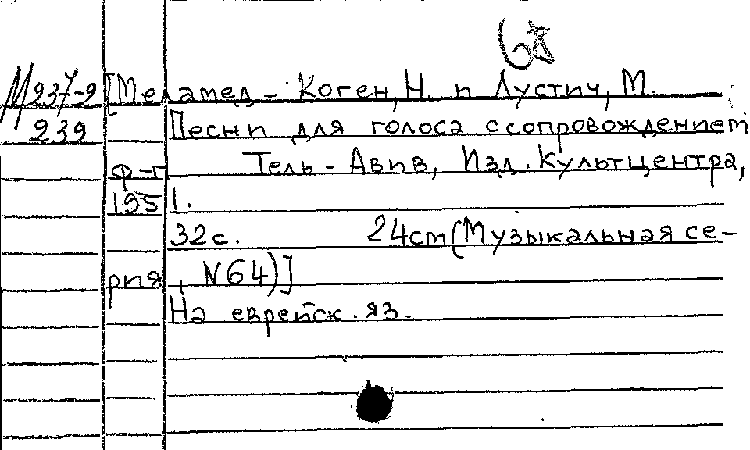 68
М937-9 [Меламед - Коген, Н. и Лустич, М.
239 Песни для голоса с сопровождением
ф-п Тель - Авив, Изд. Культцентра,
1951.
32с. 24cm (Музыкальная се-
рия, N64)]
На еврейск. яз.